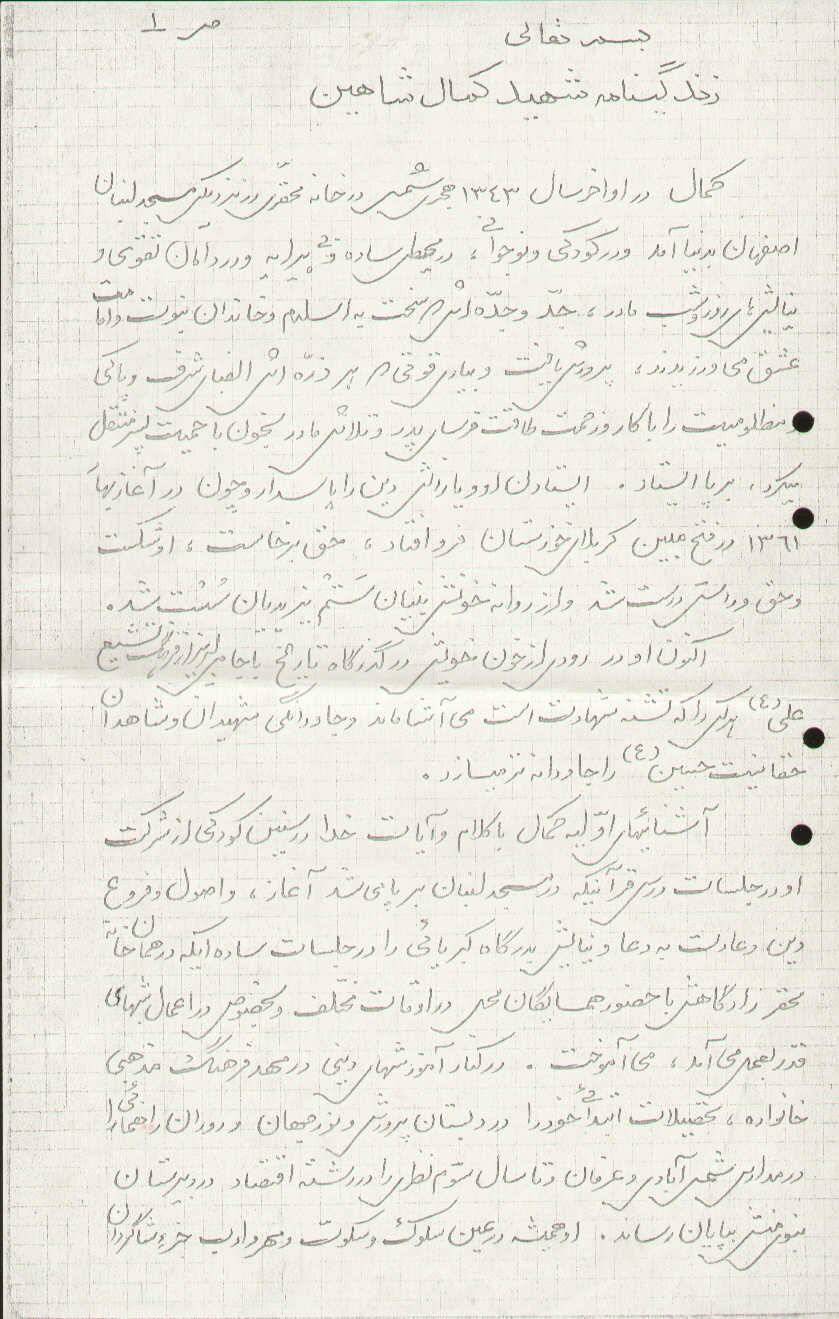 ص ۱
بسمه تعالی
زندگینامه شهید کمال شاهین
کمال در اواخر سال ۱۳۴۳ هجری شمسی در خانه محقّری در نزدیکی مسجد لنبان
اصفهان بدنیا آمد و در کودکی و نوجوانی، در محیطی ساده و بی پیرایه و در دامان تقوی و
نیایش‌های روز و شب مادر، جدّ و جدّه اش که سخت به اسلام و خاندان نبوت و امامت
عشق می ورزیدند، پرورش یافت و بیاری قوتی که بر ذرّه اش الفبای شرف و پاکی
و مظلومیت را با کار و زحمت طاقت فرسای پدر و تلاش مادر بخون با حمیت پسر منتقل
میکرد، برپا ایستاد. ایستادن او و یارانش دین را پاسدار و چون در آغاز بهار
۱۳۶۱ در فتح مبین کربلای خوزستان فرو افتاد، حق برخاست، او شکست
و حق و راستی درست شد و از روانه خونش بنیان ستم یزیدیان سُست شد.
اکنون او در رودی از خون خویش در گذرگاه تاریخ با جامی لبریز از فرهنگ تشیع
علی (ع) هر کس را که تشنه شهادت است می آشاماند و جاودانگی شهیدان و شاهدان
حقانیت حسین (ع) را جاودانه تر میسازد.
آشنائیهای اوّلیه کمال با کلام و آیات خدا در سنین کودکی از شرکت
او در جلسات درس قرآنیکه در مسجد لنبان برپا می شد آغاز، و اصول و فروع
دین و عادت به دعا و نیایش بدرگاه کبریائی را در جلسات ساده ایکه در همان خانه
محقر زادگاهش با حضور همسایگان محل در اوقات مختلف و بخصوص در اعمال شبهای
قدر بعمل می آمد، می آموخت. در کنار آموزشهای دینی در مهد فرهنگ مذهبی
خانواده، تحصیلات ابتدائی خود را در دبستان پرورش و نورجهان و دوران راهنمائی را
در مدارس شمس آبادی و عرفان و تا سال سوّم نظری را در رشته اقتصاد در دبیرستان
بپایان رساند. او همیشه در عین سلوک و سکوت و مهر و ادب جزء شاگردان